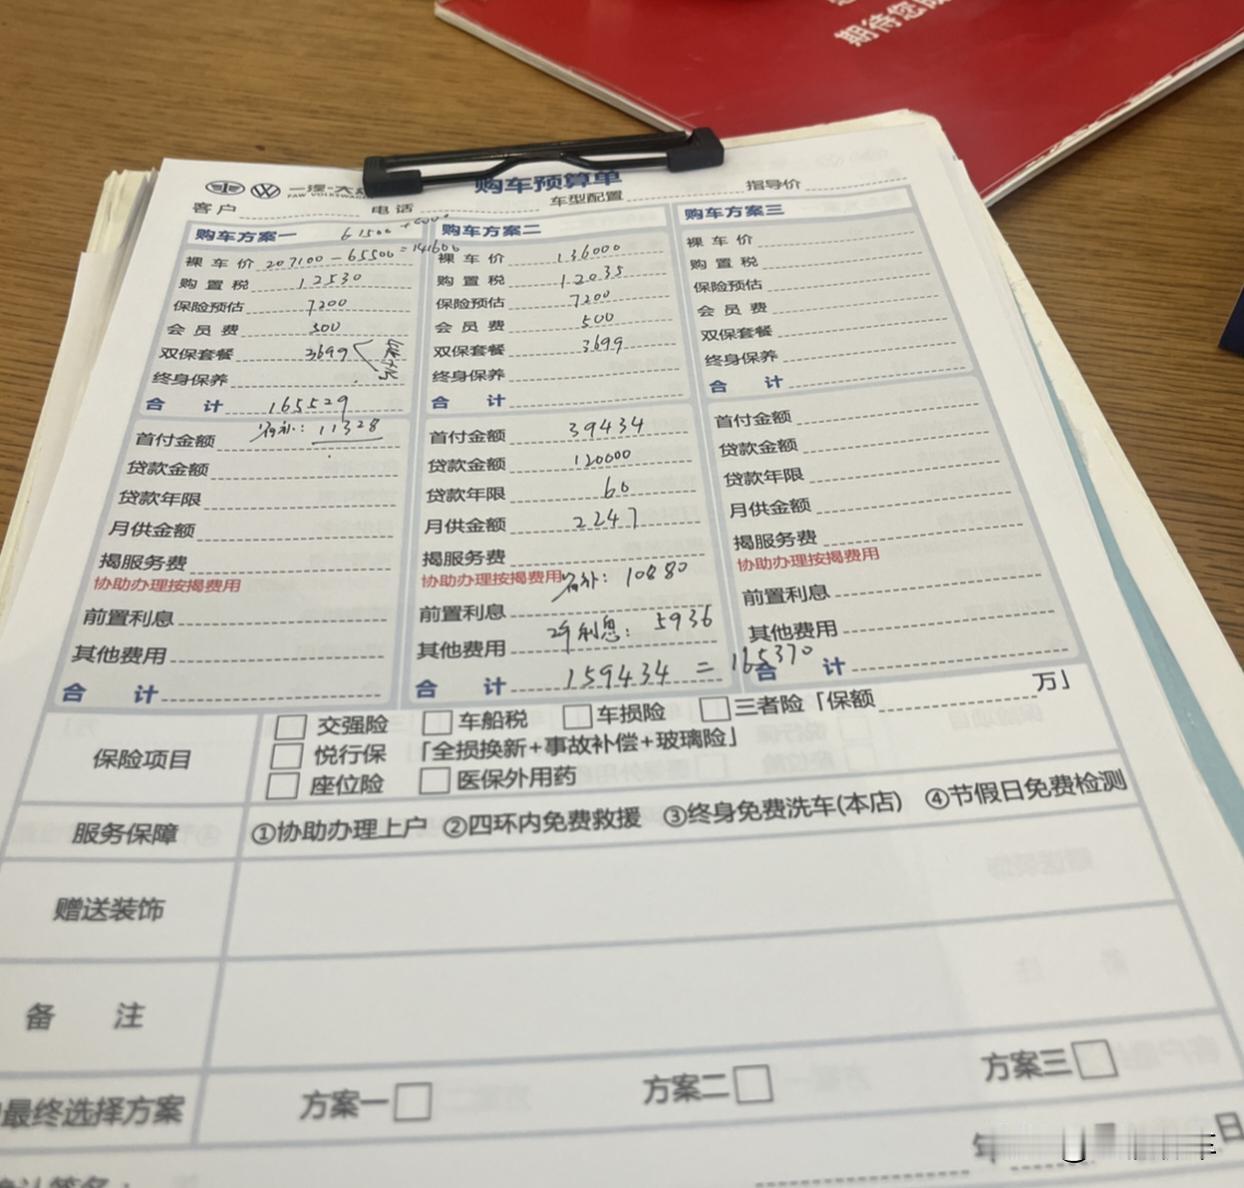 期待您
一汽-大众
FAW-VOLKSWAGEN
购车预算单
客户
电话
车型配置
指导价
购车方案一
61500
裸车价 207100-65500=141600
购置税 12530
保险预估 7200
会员费 500
双保套餐 3699
终身保养
合计 165529
首付金额 省补：11328
贷款金额
贷款年限
月供金额
揭服务费
协助办理按揭费用
前置利息
其他费用
合计
购车方案二
裸车价 136000
购置税 12035
保险预估 7200
会员费 500
双保套餐 3699
终身保养
合计
首付金额 39434
贷款金额 120000
贷款年限 60
月供金额 2247
揭服务费
协助办理按揭费用 省补：10880
前置利息
其他费用 净利息：5936
合计 159434 = 165370
购车方案三
裸车价
购置税
保险预估
会员费
双保套餐
终身保养
合计
首付金额
贷款金额
贷款年限
月供金额
揭服务费
协助办理按揭费用
前置利息
其他费用
合计
保险项目
交强险 车船税 车损险 三者险「保额 万」
悦行保 「全损换新+事故补偿+玻璃险」
座位险 医保外用药
服务保障 ①协助办理上户 ②四环内免费救援 ③终身免费洗车(本店) ④节假日免费检测
赠送装饰
备注
最终选择方案 方案一 方案二 方案三
年 日